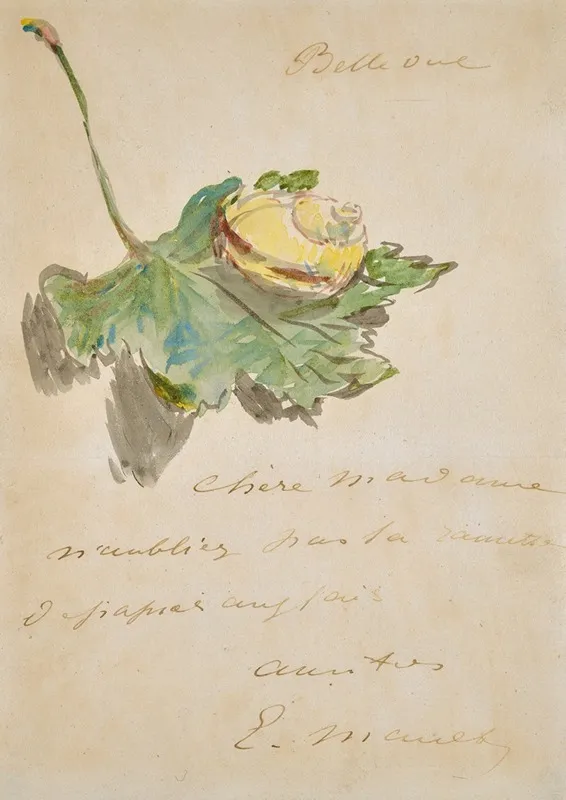 Bellevue
chère madame
n'oubliez pas la ramette
de papier anglais
amitiés
E. Manet